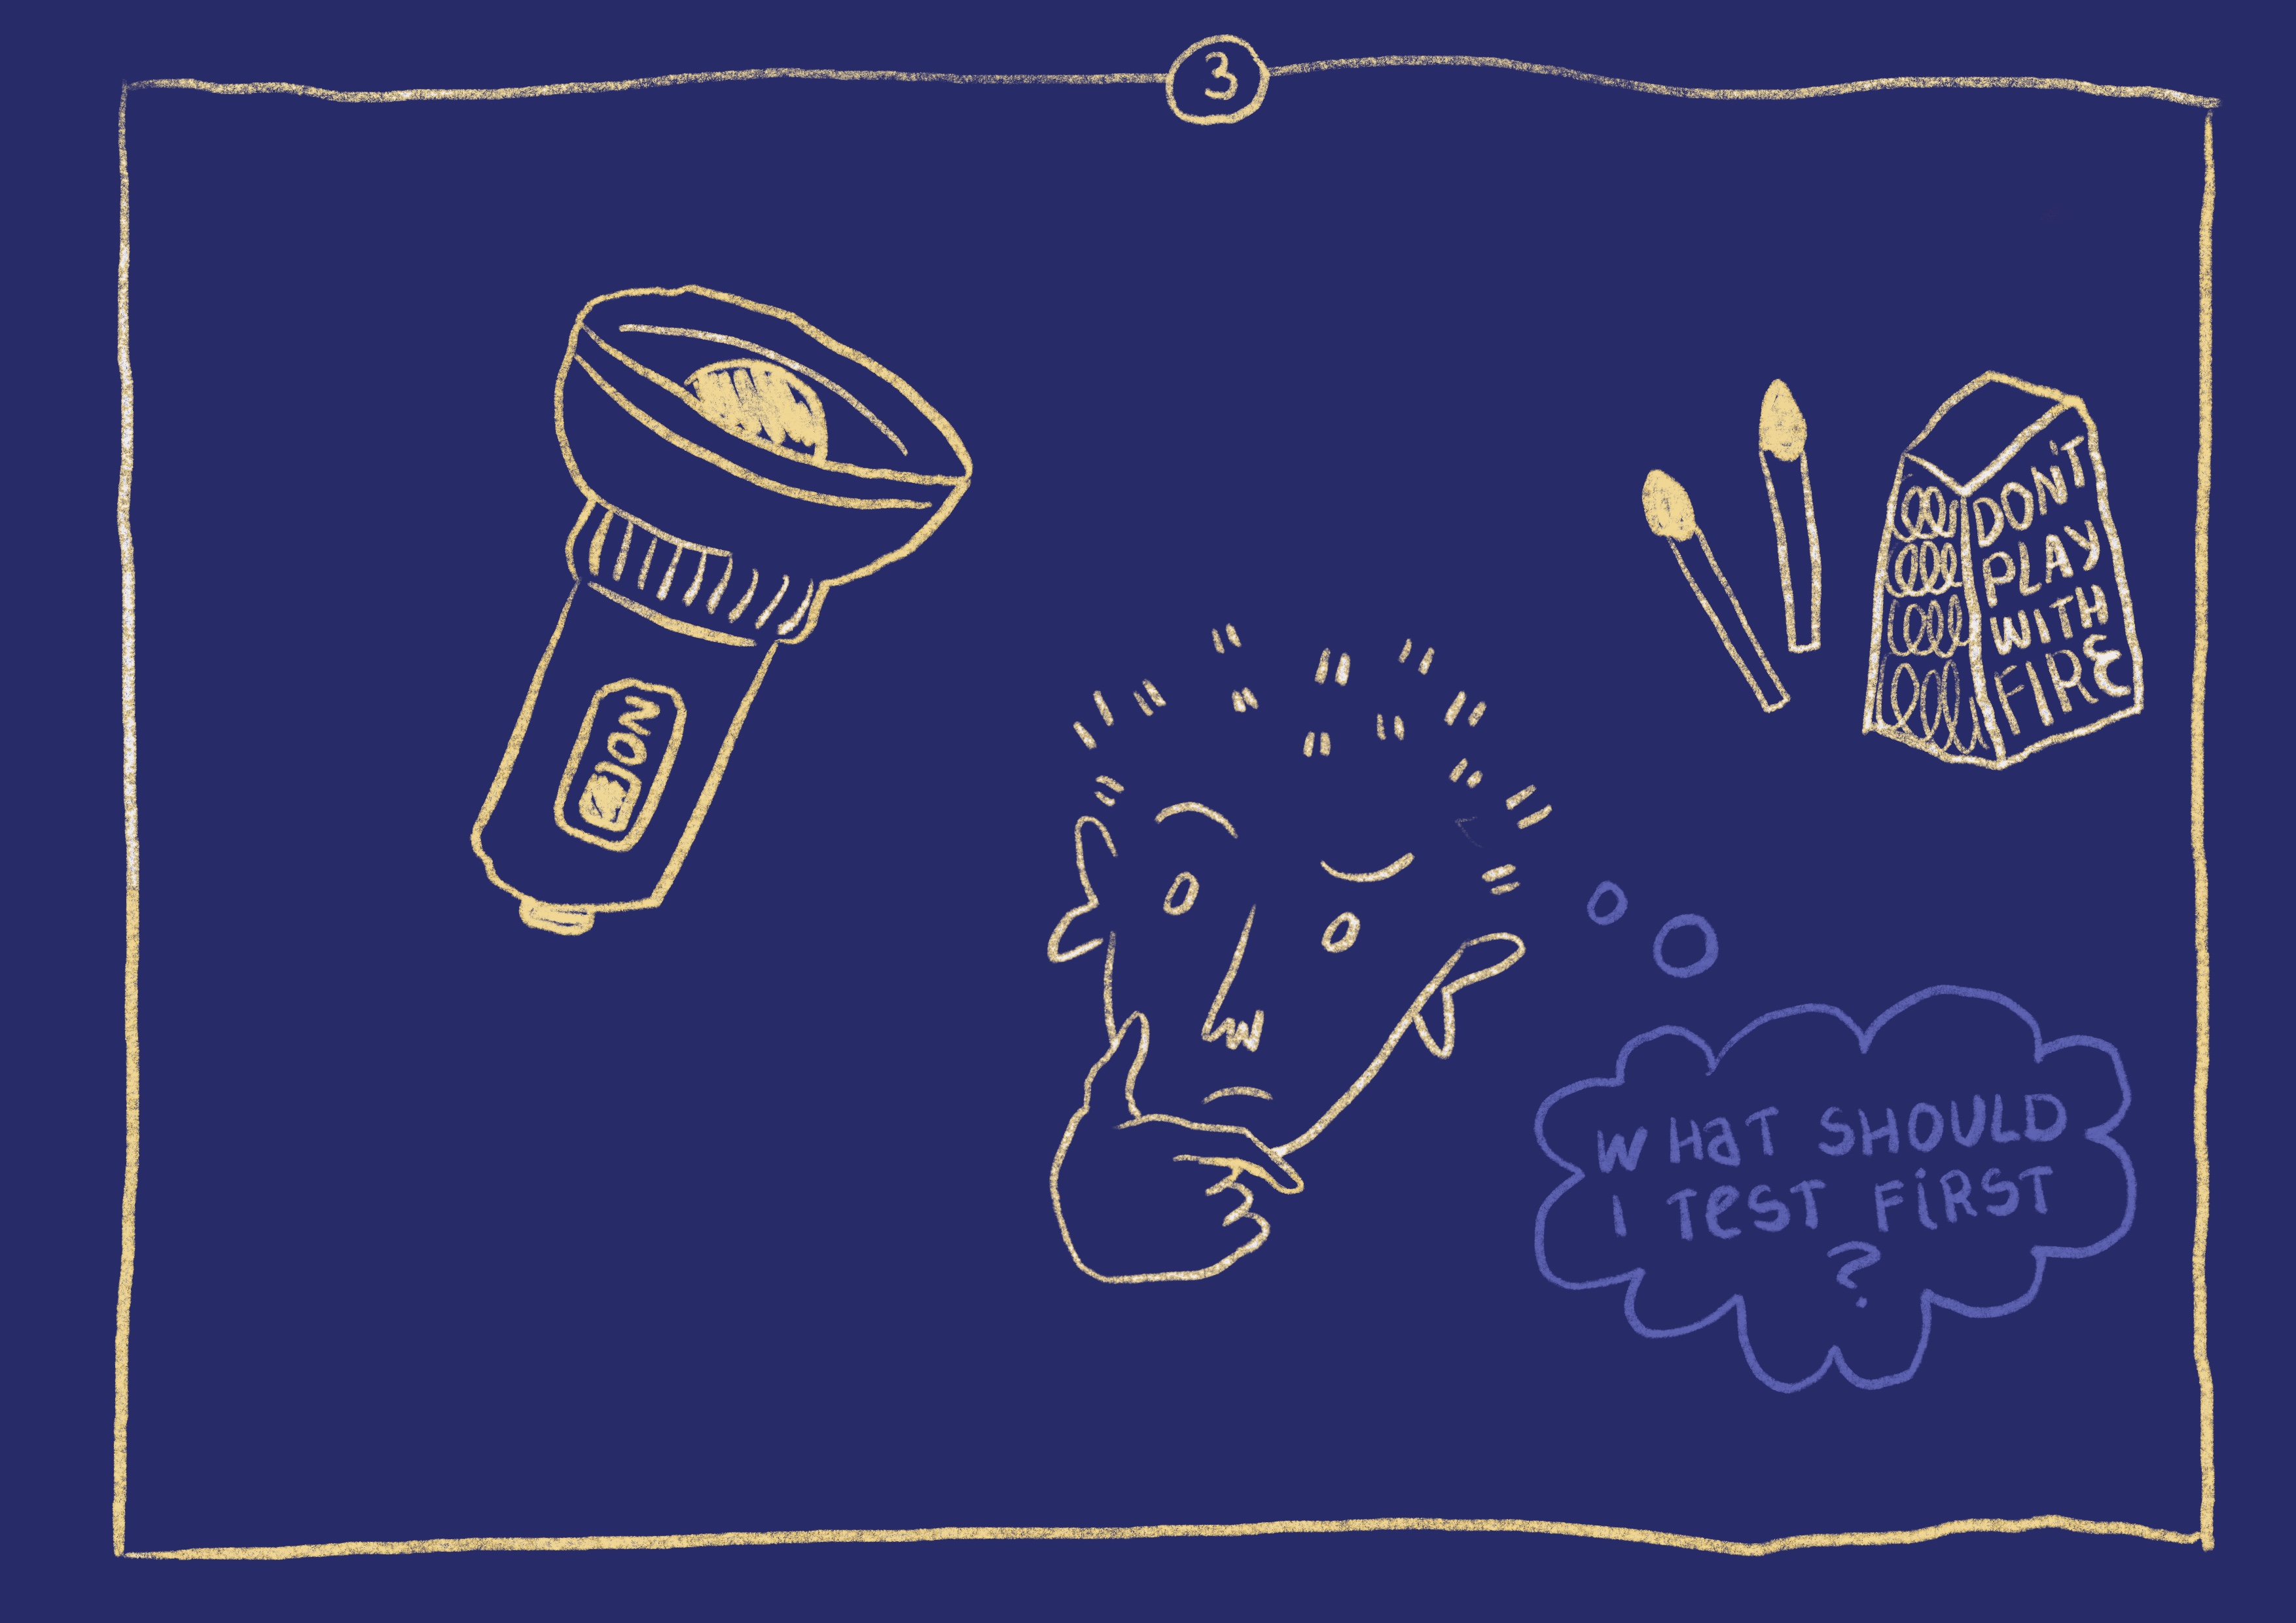 3
ON
DON'T
PLAY
WITH
FIRE
WHaT SHOULD
I TeST FiRST
?